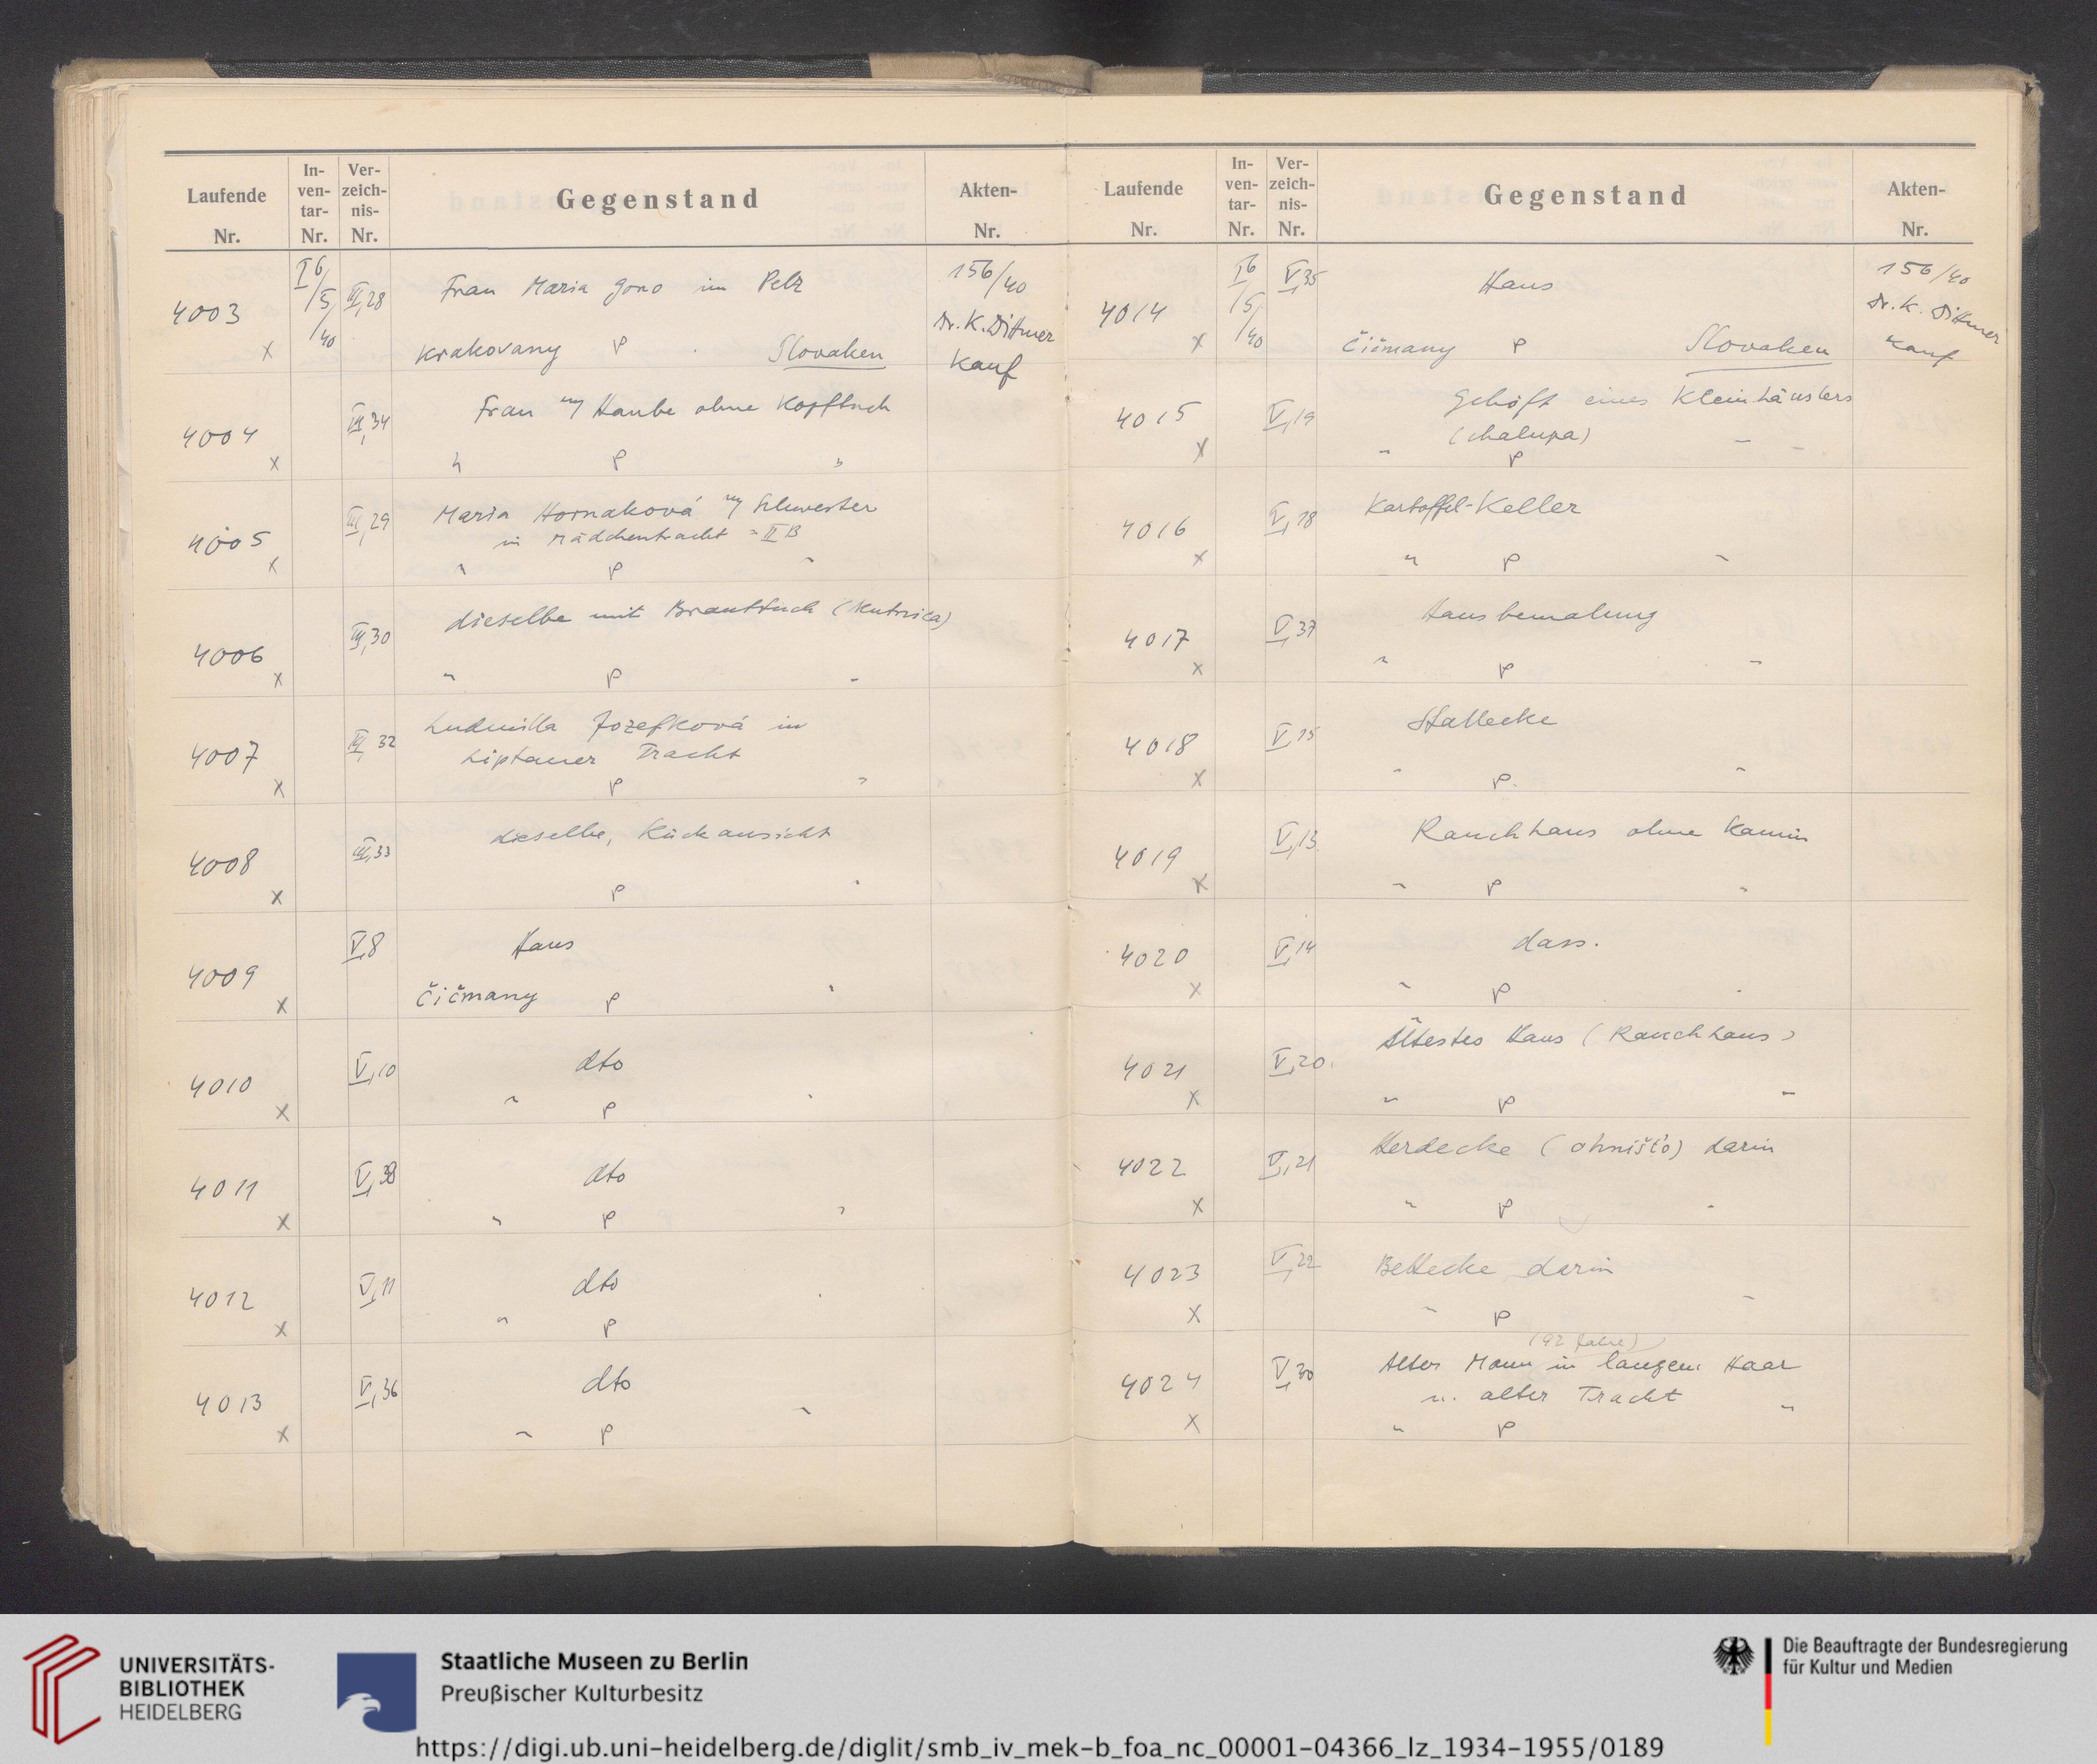 Laufende Nr. In-ven-tar-Nr. Ver-zeich-nis-Nr. Gegenstand Akten-Nr.
4003 x I 6/5/40 III,28 Frau Maria Gono im Pelz 156/40
Krakovany P Slovaken Dr. K. Dittmer Kauf
4004 x III,34 Frau m/ Haube ohne Kopftuch
" P "
4005 x III,29 Maria Hornaková m/ Schwester
in Mädchentracht = II B
" P "
4006 x III,30 dieselbe mit Brauttuch (Kutnica)
" P "
4007 x III,32 Ludmilla Jozefková in
Liptauer Tracht
P "
4008 x III,33 dieselbe, Rückansicht
P "
4009 x V,8 Haus
Čičmany P "
4010 x V,10 dto
" P "
4011 x V,38 dto
" P "
4012 x V,11 dto
" P "
4013 x V,36 dto
" P "
Laufende Nr. In-ven-tar-Nr. Ver-zeich-nis-Nr. Gegenstand Akten-Nr.
4014 x I 6/5/40 V,35 Haus 156/40
Čičmany P Slovaken Dr. K. Dittmer Kauf
4015 x V,19 Gehöft eines Kleinhäuslers
(chalupa) "
" P
4016 x V,18 Kartoffel-Keller
" P "
4017 x V,37 Hausbemalung
" P "
4018 x V,15 Stallecke
" P "
4019 x V,13 Rauchhaus ohne Kamin
" P "
4020 x V,14 dass.
" P "
4021 x V,20. Ältestes Haus (Rauchhaus)
" P "
4022 x V,21 Herdecke (ohništo) darin
" P "
4023 x V,22 Bettecke darin
" P "
(92 Jahre)
4024 x V,30 Alter Mann in langem Haar
u. alter Tracht "
" P
UNIVERSITÄTS-
BIBLIOTHEK
HEIDELBERG
Staatliche Museen zu Berlin
Preußischer Kulturbesitz
Die Beauftragte der Bundesregierung
für Kultur und Medien
https://digi.ub.uni-heidelberg.de/diglit/smb_iv_mek-b_foa_nc_00001-04366_lz_1934-1955/0189